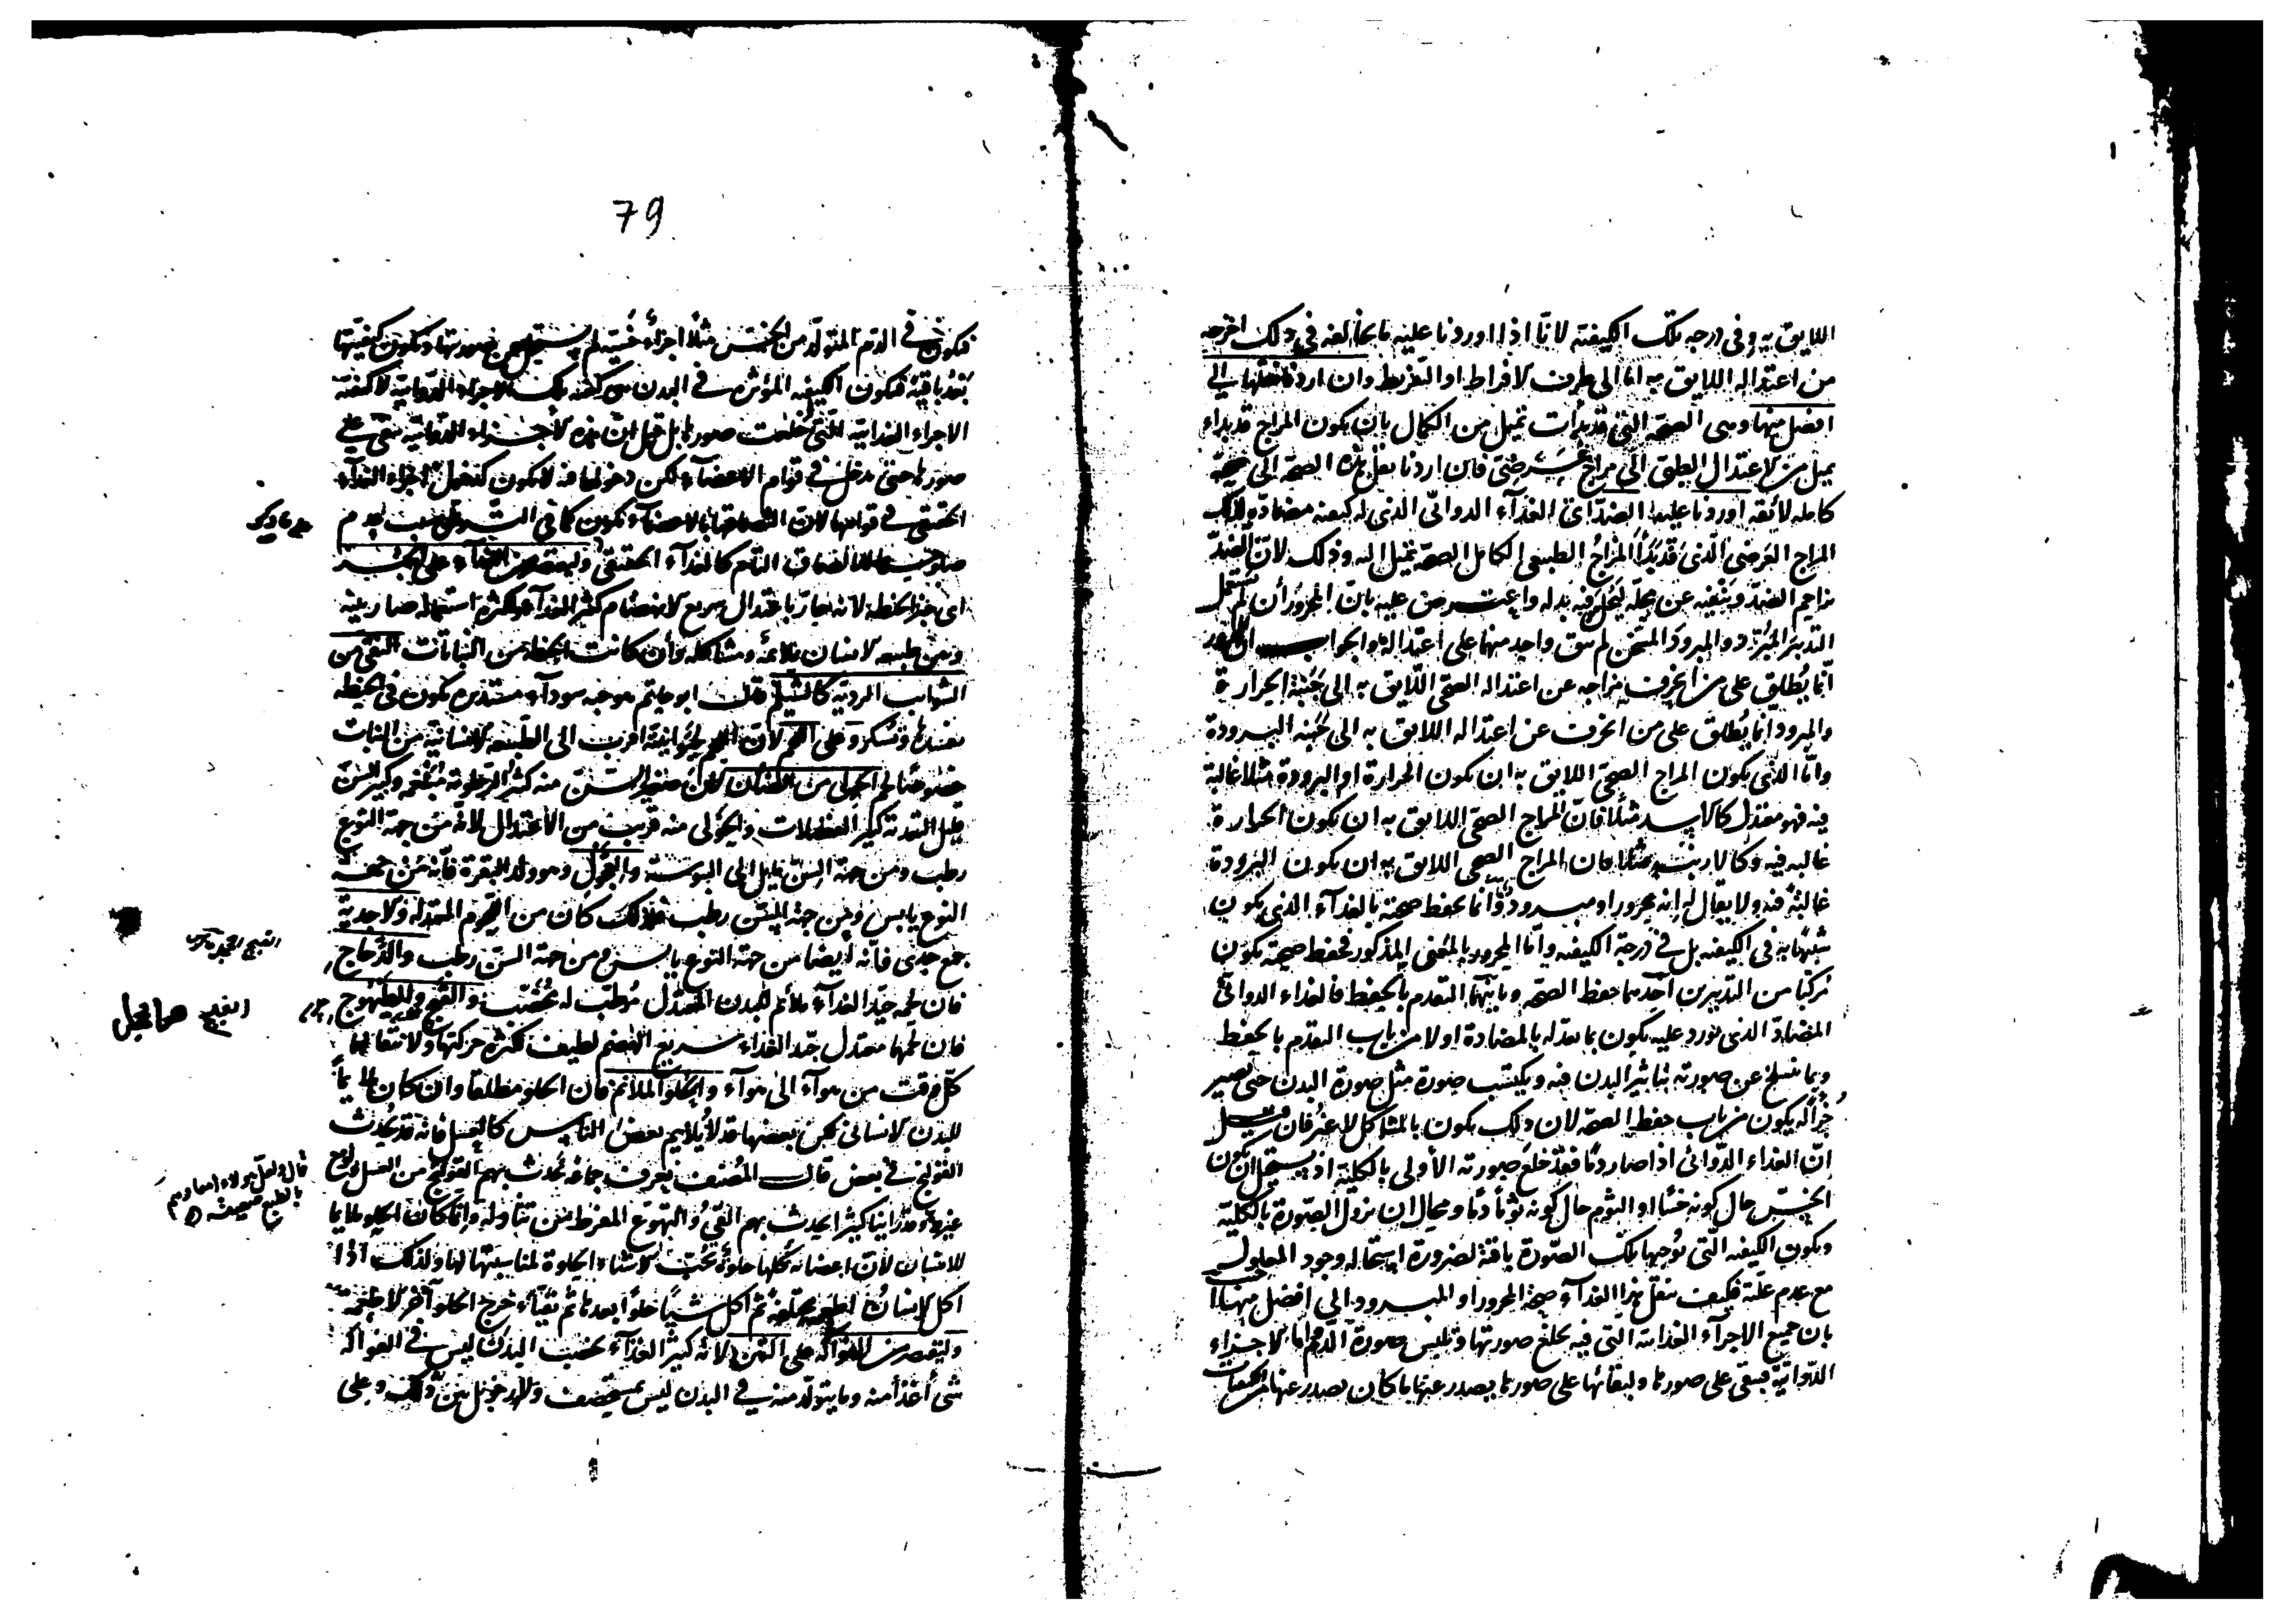 اللايق به وفى درجه تلك الكيفية لانّا اذا اوردنا عليه ما يخالفه فى ذلك اخرجه
من اعتداله اللايق به اما الى طرف الافراط او التفريط وان اردنا نقلها الى
افضل منها وهى الصحة التى قد بدأت تميل من الكمال بان يكون المزاج قد بداء
يميل من الاعتدال الى مزاج عرضى فان اردنا نقل هذه الصحة الى صحة
كامله لائقه اوردنا عليها الضدّ اى الغذآء الدوائى الذى له كيفية مضادّة لذلك
المزاج العرضى الّذى قد بدأ المزاج الطبيعى الكامل الصحة يميل اليه وذلك لانّ الضدّ
يزاحم الضدّ وينفيه عن محلّه ليحل فيه بدله واعترض عليه بانّ المحرور أن لم يستعمل
التدبير المبرّد والمبرود المسخن لم يبق واحد منهما على اعتداله والجواب انّ المحرور
انّما يُطلق على من انحرف مزاجه عن اعتداله الصحى اللّايق به الى جنبة الحرارة
والمبرود انما يُطلق على من انحرف عن اعتداله اللايق به الى جنبه البرودة
وامّا الذى يكون المزاج الصحىّ اللايق به ان يكون الحرارة او البرودة مثلا غالبة
فيه فهو معتدل كالاسد مثلا فانّ المزاج الصحى اللايق به ان يكون الحرارة
غالبه فيه وكالارنب مثلا فان المزاج الصحى اللايق به ان يكون البرودة
غالبة فيه ولا يقال له إنه محرور او مبرود وانّما يحفظ صحته بالغذآء الذى يكون
شبيهًا به فى الكيفيه بل فى درجة الكيفيه وامّا المحرور بالمعنى المذكور فحفظ صحته يكون
مركبا من التدبيرين احدهما حفظ الصحة وثانيهما التقدم بالحفظ فالغذاء الدوائىّ
المضادّ الذى نورد عليه يكون بما يعدله بالمضادة اولا من باب التقدم بالحفظ
وبما ينسلخ عن صورته بتاثير البدن فيه ويكتسب صورة مثل صورة البدن حتى يصير
جزأ له يكون من باب حفظ الصحة لان ذلك يكون بالمشاكل لا غير فان قيل
انّ الغذاء الدّوائى اذا صار دمًا فقد خلع صورته الأولى بالكلية اذ يستحيل ان يكون
الخسّ حال كونه خسًا او الثوم حال كونه ثومًا دمًا ومحال ان تزول الصّورة بالكليّة
ويكون الكيفيه الّتى توجبها تلك الصّورة باقية لضرورة استحاله وجود المعلول
مع عدم علّته فكيف ينقل هذا الغذآء صحة المحرور او المبرود الى افضل منها
بان جميع الاجزآء الغذائية التى فيه يخلع صورتها وتلبس صورة الدّم واما الاجزاء
الدّوائيّة فتبقى على صورها ولبقائها على صورها يصدر عنها ما كان يصدر عنها من الكيفيات
79
فيكون فى الدّم المتولّد من الخسّ مثلًا اجزآء خسّية لم تستحل عن صورتها ويكون كيفيّتها
بعد باقية فيكون الكيفيه المؤثرة فى البدن هى كيفية تلك الاجزاء الدّوائيّة لا كيفيّة
الاجزاء الغذائية الّتى خلعت صورها بل قيل انّ هذه الأجزاء الدّوائيّه تبقى على
صورها حتى تدخل فى قوام الاعضآء لكن دخولها فيه لا يكون كدخول اجزاء الغذآء
الحقيقى فى قوامها لانّ التصاقها بالاعضآء يكون كما فى
الالتصاق التام كالغذآء الحقيقىّ وليقتصر من الغذآء على الخبز
اى خبز الحنطه لانه حارّ باعتدال سريع الانهضام كثير الغذآء ولكثرة استعماله صار بينه
وبين طبيعه الانسان ملائمه ومشاكله وأن كانت الحنطة من النباتات النقى من
الشوائب الرديّه كالشيلم قال ابو حاتم هو حبّه سودآء مستديره يكون فى الحنطه
يفسدها وتسكر وعلى اللحم لانّ اللحم لحيوانيّته اقرب الى الطّبيعه الانسانية من النبات
خصوصًا لحم الحولى من الضأن لانّ صغير السنّ منه كثير الرّطوبة مُنفخه وكبير السّنّ
قليل التغذية كثير الفضلات والحولى منه قريب من الاعتدال لانّه من جهة النوع
رطب ومن جهة السّنّ مايل الى اليبوسة والعجول وهو ولد البقرة فانّه من جهة
النوع يابس ومن جهة السّن رطب فلذلك كان من اللحوم المعتدلة والاجدية
جمع جدى فانّه ايضا من جهة النوع يابس ومن جهة السّن رطب والدّجاج
فان لحمه جيّد الغذآء ملائم للبدن المعتدل مُرطّب له مُخصّب والقبج والطّيهوج
فان لحمهما معتدل جيّد الغذاء سريع الهضم لطيف لكثرة حركتهما ولانتقالهما
كلّ وقت من هوآء الى هوآء والحلو الملائم فان الحلو مطلقا وان كان ملايمًا
للبدن الانسانى لكن بعضها قد لا يلايم بعض الناس كالعسل فانه قد يحدث
القولنج فى بعض قال المصنف يعرف جماعة يحدث بهم القولنج من العسل
غيرها وقد راينا كثيرا يحدث بهم القئ والتهوّع المفرط من تناوله وانّما كان الحلو ملايما
للانسان لانّ اعضائه كلها حلوة تحبّ الاشياء الحلوة لمناسبتها لها ولذلك اذا
اكل الانسان اطعمه مختلفه ثمّ اكل شيئًا حلوًا بعدها ثم تقيّأ خرج الحلو آخر الاطعمة
وليقتصر من الفواكه على التين لانّه كثير الغذآء يخصب البدن ليس فى الفواكه
شئ أغذأ منه وما يتولّد منه فى البدن ليس بمستحصف ولا رخو بل بين ذلك وعلى
القبج
قال ولعلّ هولاء